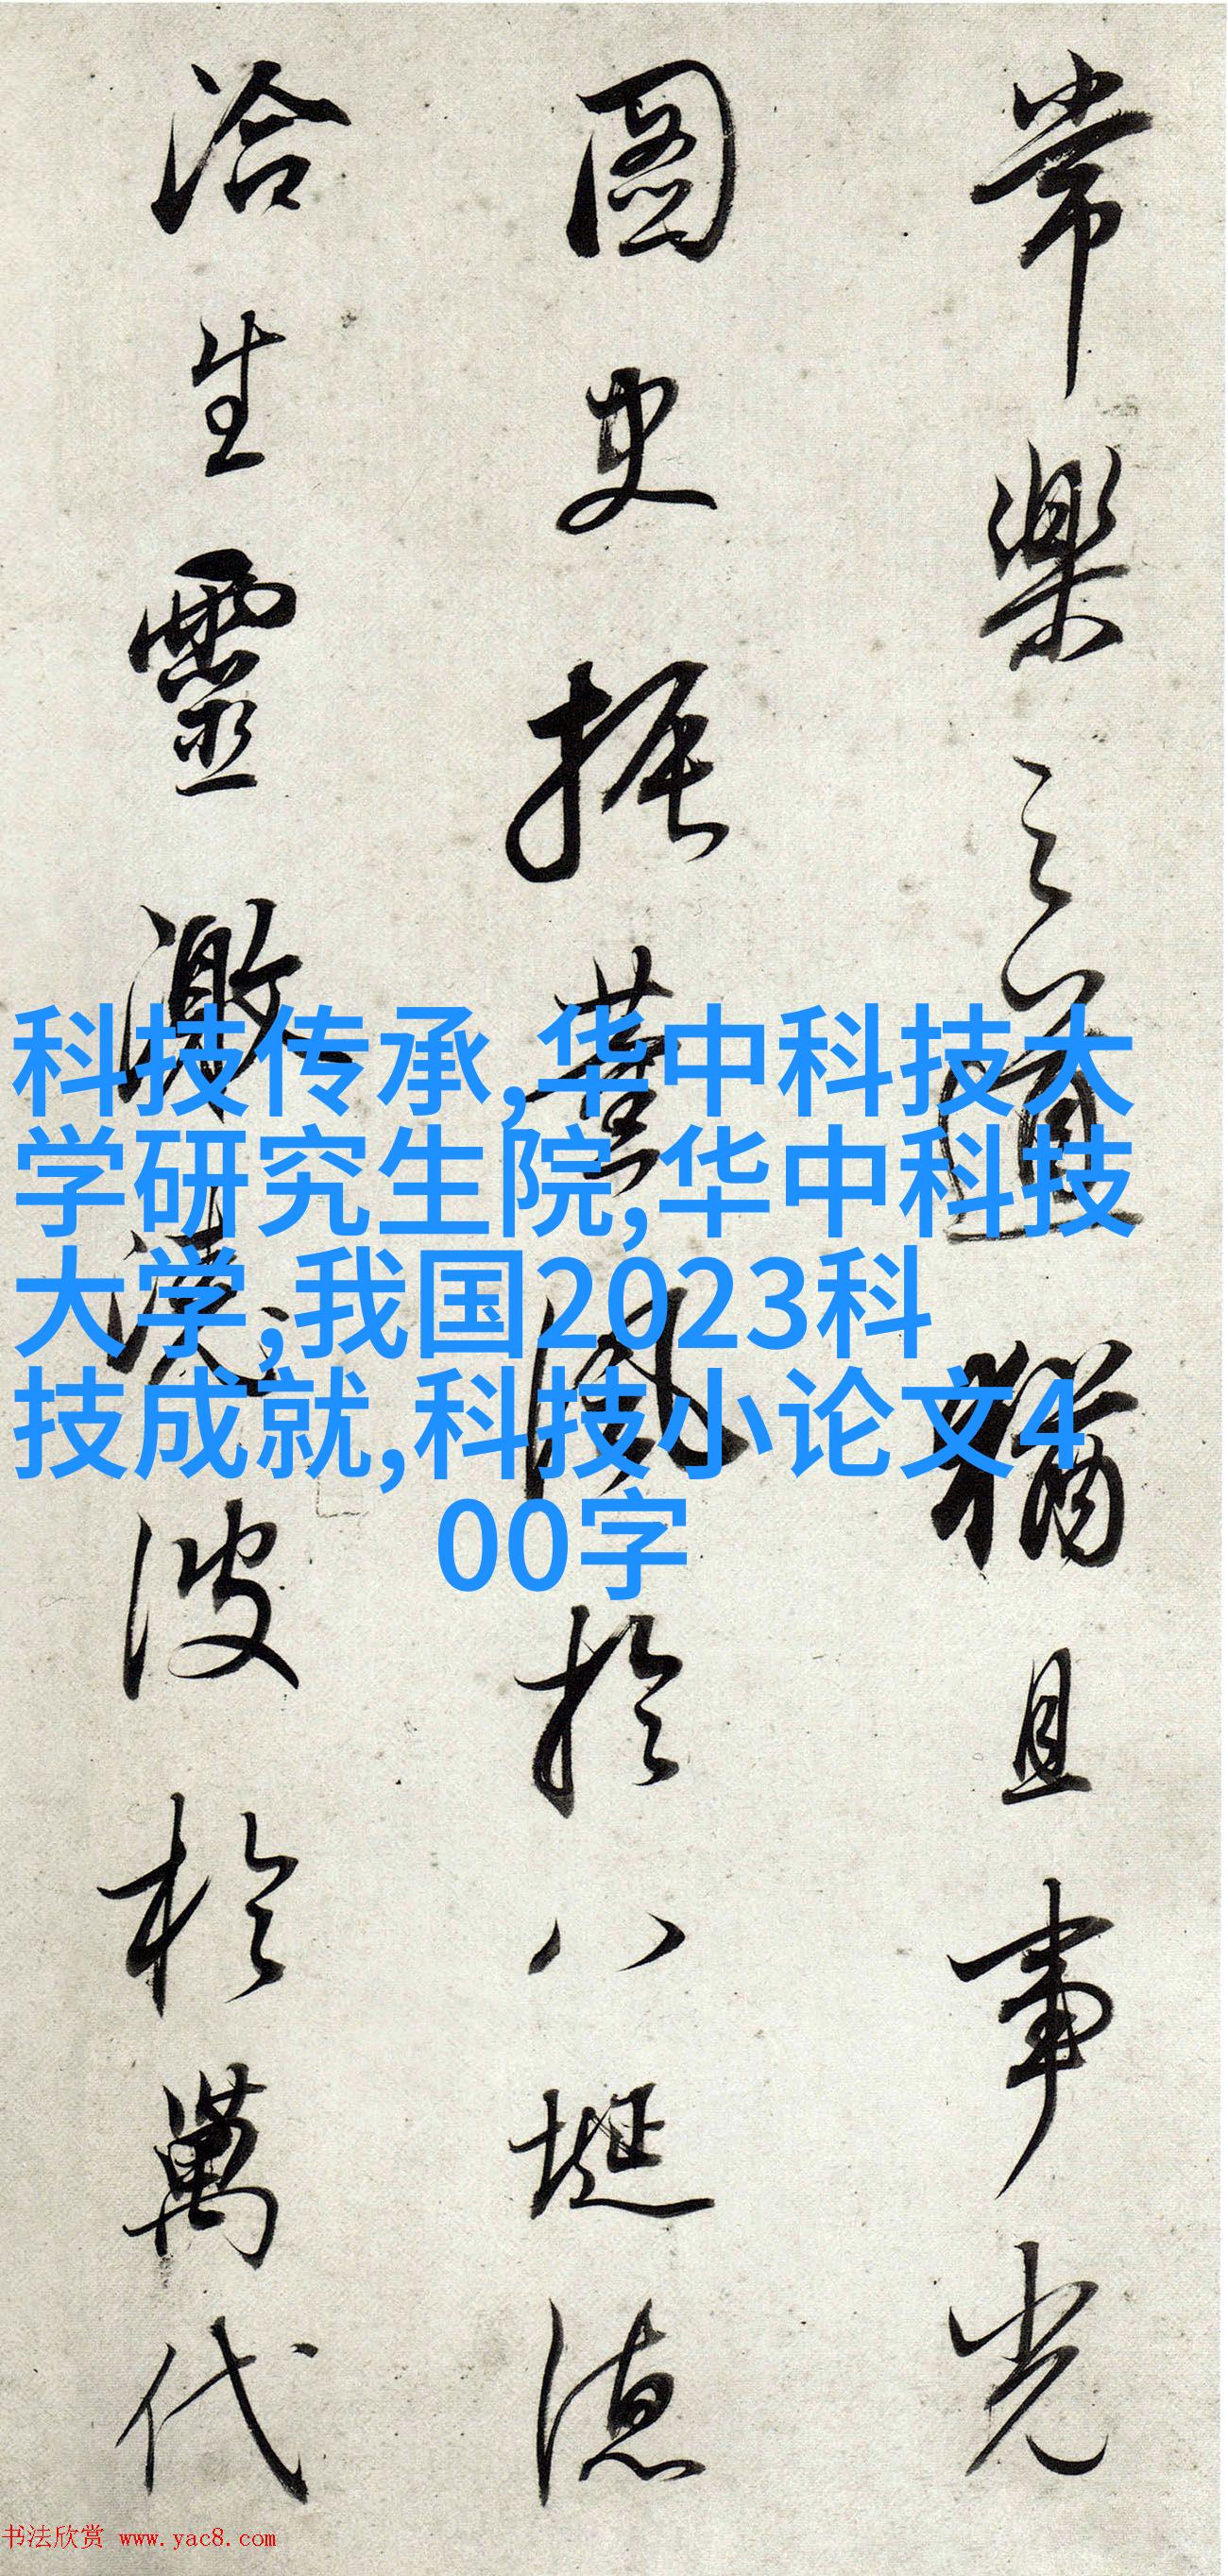 常樂之道猶且事光
圖史振薰風於八埏德
洽生靈激清波於萬代
科技传承,华中科技大
学研究生院,华中科技
大学,我国2023科
技成就,科技小论文4
00字
书法欣赏 www.yac8.com